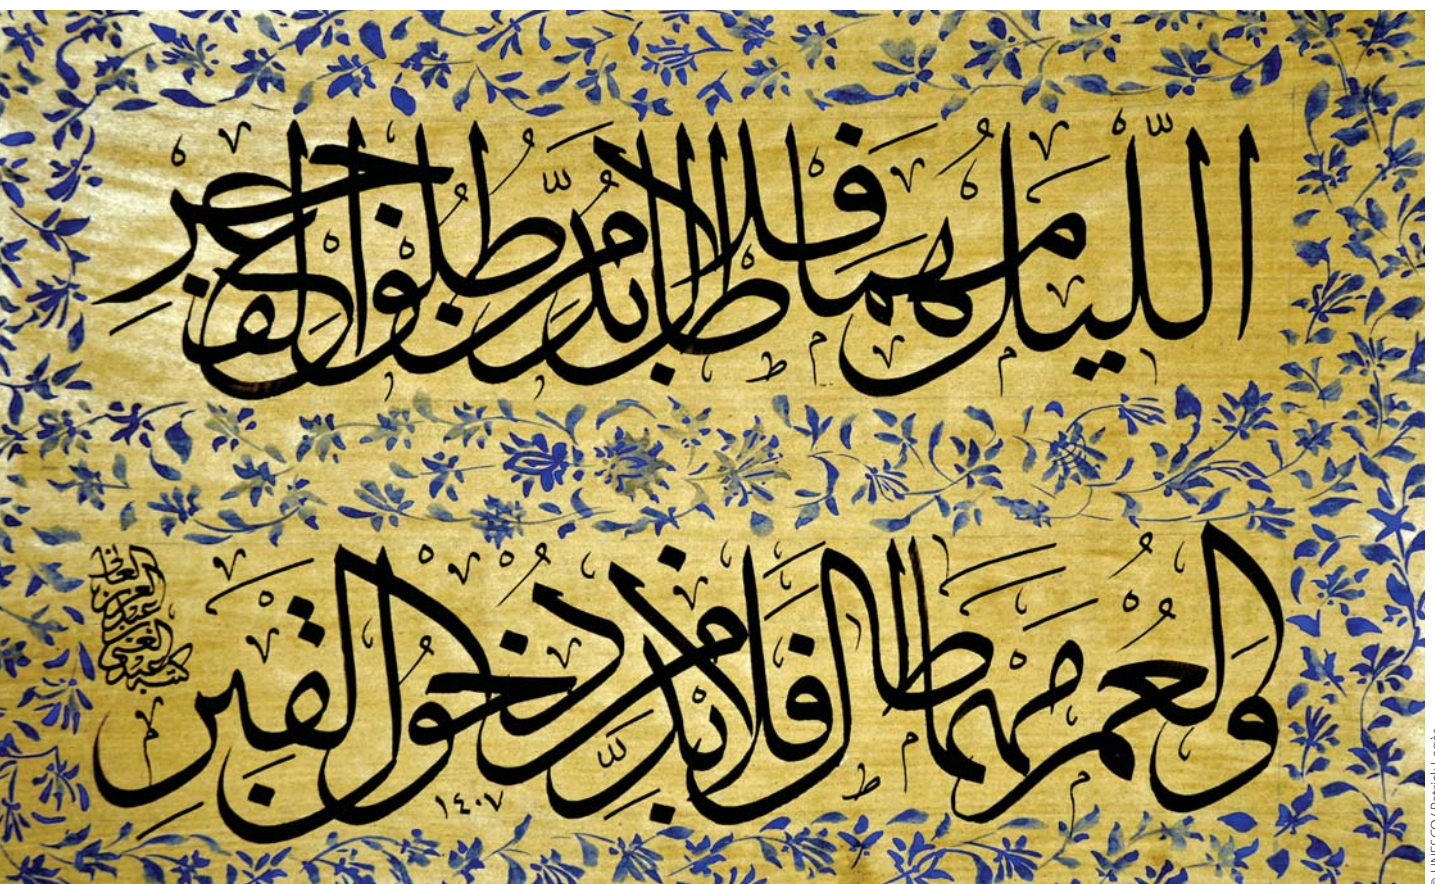 الليل مهما طال فلا بد من طلوع الفجر
والعمر مهما طال فلا بد من دخول القبر
كتبه عبد الغني عبد العزيز العاني
١٤٠٧
© UNESCO/ Patrick Lagès